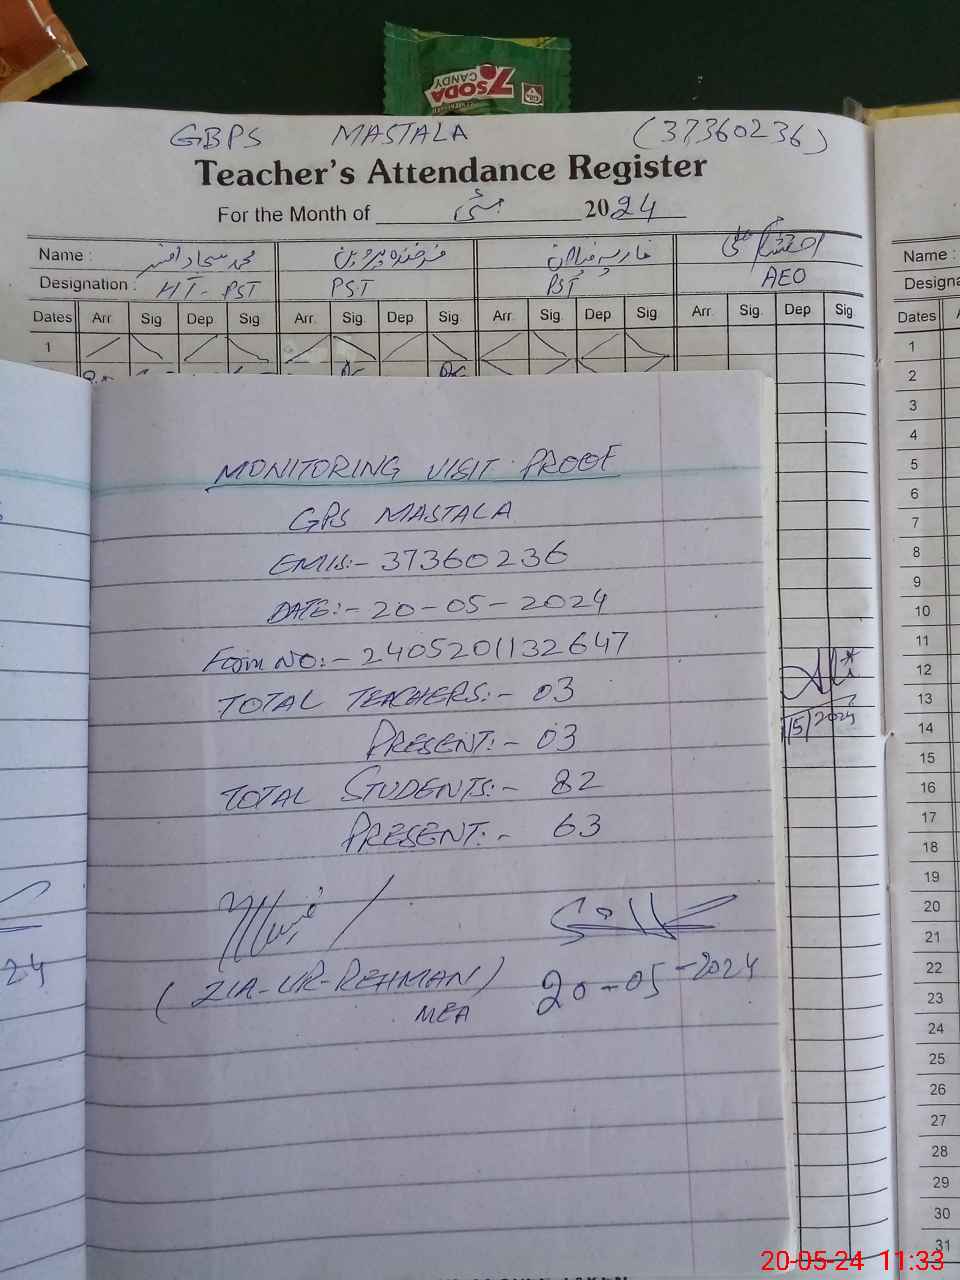 7 SODA
CANDY
GBPS MASTALA (37360236)
Teacher's Attendance Register
For the Month of مئی 2024
Name : محمد سجاد اصغر فرخندہ پروین
Designation : HT - PST PST PST AEO
Dates Arr. Sig. Dep Sig Arr. Sig. Dep Sig Arr. Sig. Dep Sig Arr. Sig. Dep Sig.
1
MONITORING VISIT PROOF
GPS MASTALA
EMIS:- 37360236
DATE:- 20-05-2024
Form NO:- 2405201132647
TOTAL TEACHERS:- 03
PRESENT:- 03
TOTAL STUDENTS:- 82
PRESENT:- 63
(ZIA-UR-REHMAN)
MEA
20-05-2024
24
15/2024
Name :
Designa
Dates A
1
2
3
4
5
6
7
8
9
10
11
12
13
14
15
16
17
18
19
20
21
22
23
24
25
26
27
28
29
30
31
20-05-24 11:33